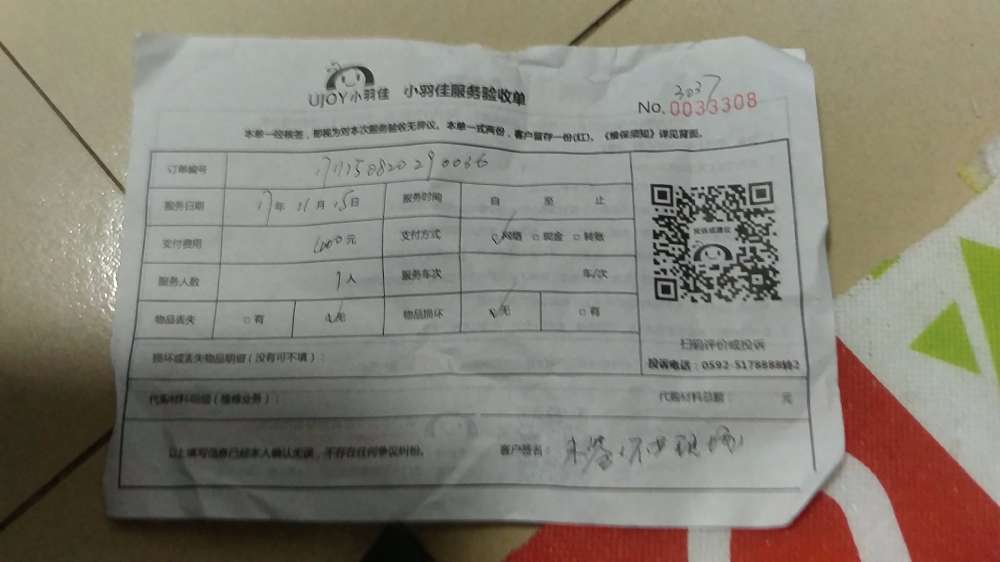 UJOY小羽佳 小羽佳服务验收单
3037
No. 0033308
本单一经核签，即视为对本次服务验收无异议。本单一式两份，客户留存一份(红)。《维保须知》详见背面。
订单编号
服务日期 17年 11月 15日 服务时间 自 至 止
支付费用 元 支付方式 网络 □ 现金 □ 转账
服务人数 1人 服务车次 车/次
物品丢失 □ 有 无 物品损坏 无 □ 有
投诉或建议
扫码评价或投诉
投诉电话：0592-5178888转2
损坏或丢失物品明细（没有可不填）：
代购材料明细（维修业务）： 代购材料总额： 元
以上填写信息已经本人确认无误，不存在任何争议纠纷。 客户签名：